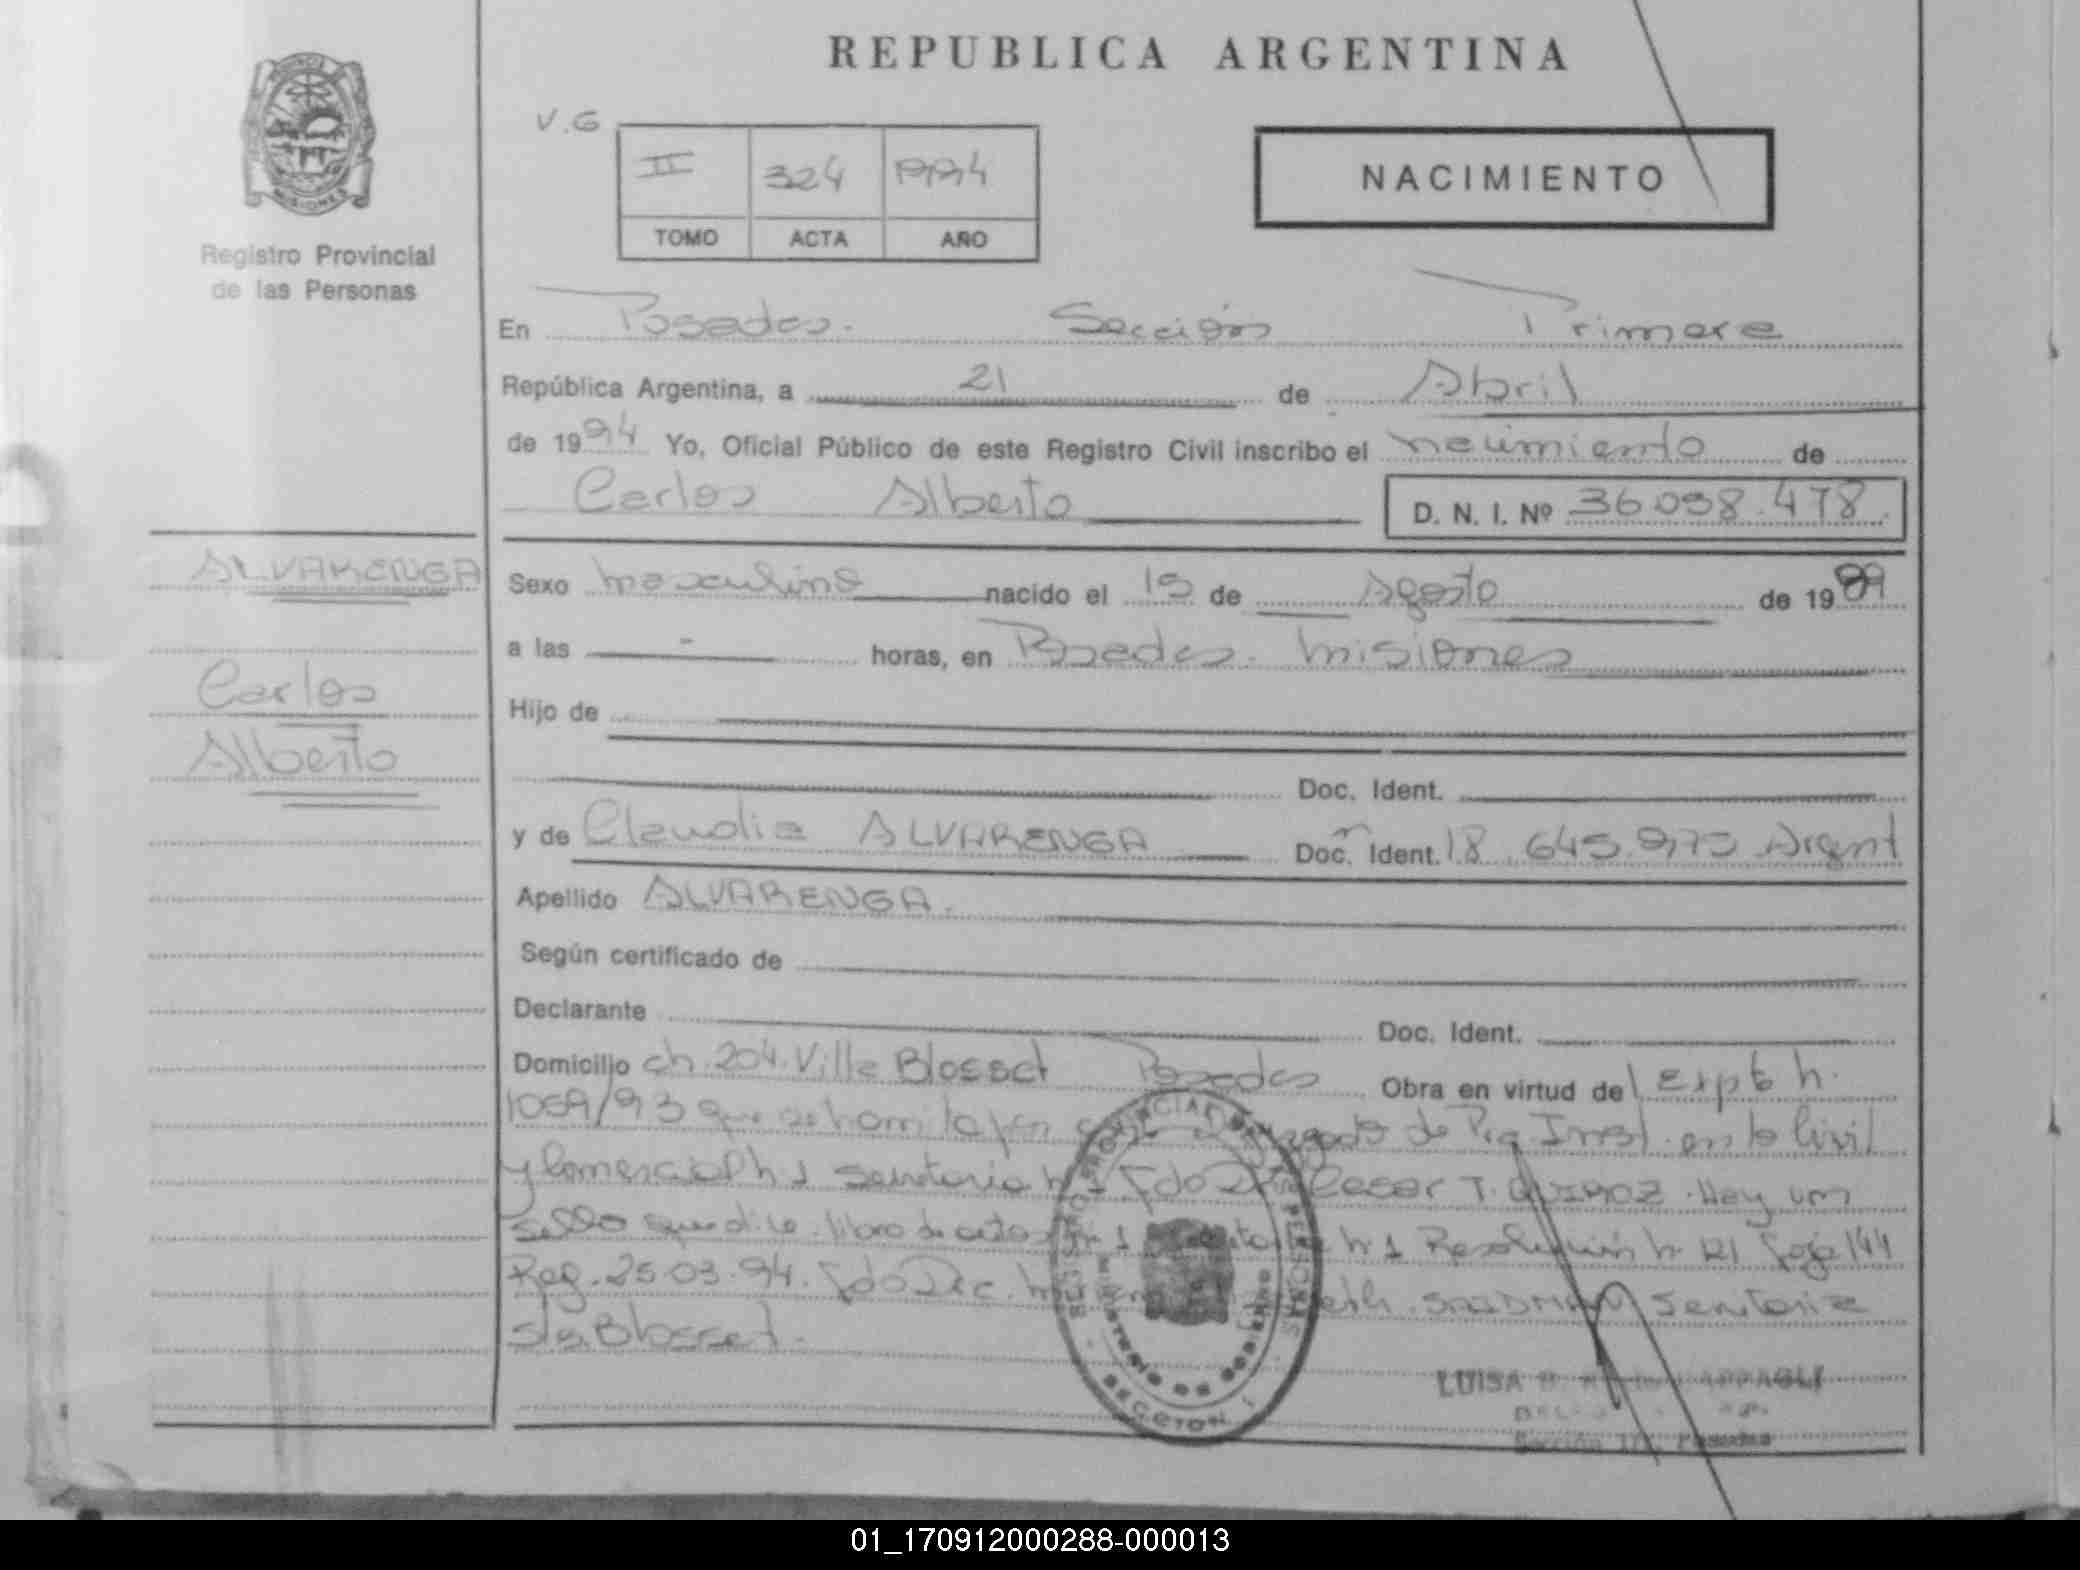 REPUBLICA ARGENTINA
V.G
II 324 1994
TOMO ACTA AÑO
NACIMIENTO
MISIONES
Registro Provincial
de las Personas
En Posadas. Sección Primera
República Argentina, a 21 de Abril
de 1994 Yo, Oficial Público de este Registro Civil inscribo el nacimiento de
Carlos Alberto D. N. I. Nº 36.098.478.
ALVARENGA
Carlos
Alberto
Sexo masculino nacido el 15 de Agosto de 1989
a las - horas, en Posadas. Misiones
Hijo de
Doc. Ident.
y de Claudia ALVARENGA Doc. Ident. 18.645.975 Argent
Apellido ALVARENGA.
Según certificado de
Declarante Doc. Ident.
Domicilio ch. 204. Villa Blosset Posadas Obra en virtud de Expte n.
1059/93 que se tramita por Juzgado de Pra. Inst. en lo Civil
y Comercial n 1 Secretaria n 1 Fdo Dr. Cesar T. QUIROZ. Hay un
sello que dice. libro de autos n 1 n 1 Resolución n 121 foja 144
Reg. 25.03.94. Fdo Dra. Secretaria
s/g. Blosset.
MINISTERIO DE GOBIERNO
SECCION 1
LUISA
Sección 1ra. Posadas
01_170912000288-000013